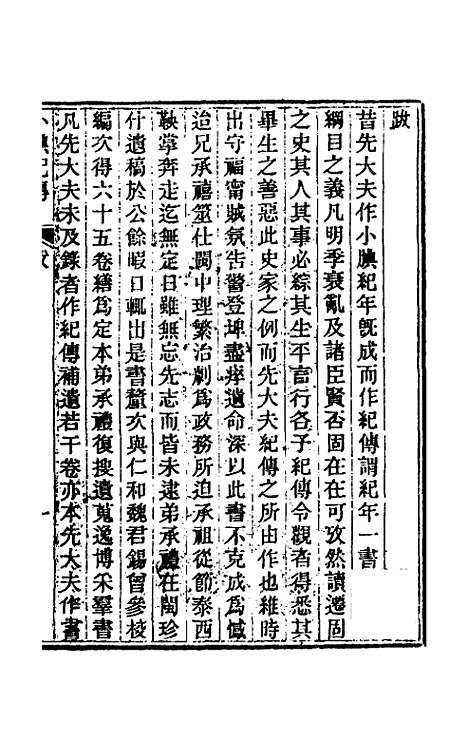 跋
昔先大夫作小腆紀年旣成而作紀傳謂紀年一書
綱目之義凡明季衰亂及諸臣賢否固在在可攷然讀遷固
之史其人其事必綜其生平畜行各予紀傳令觀者得悉其
畢生之善惡此史家之例而先大夫紀傳之所由作也維時
出守福甯賊氛告警登埤盡瘁遺命深以此書不克成爲憾
迨兄承禧筮仕閩中理繁治劇爲政務所迫承祖從節泰西
鞅掌奔走迄無定日雖無忘先志而皆未逮弟承禮在閩珍
什遺稿於公餘暇日輒出是書釐次與仁和魏君錫曾參校
編次得六十五卷繕爲定本弟承禮復搜遺蒐逸博采羣書
凡先大夫未及錄者作紀傳補遺若干卷亦本先大夫作書
小腆紀傳
跋
一